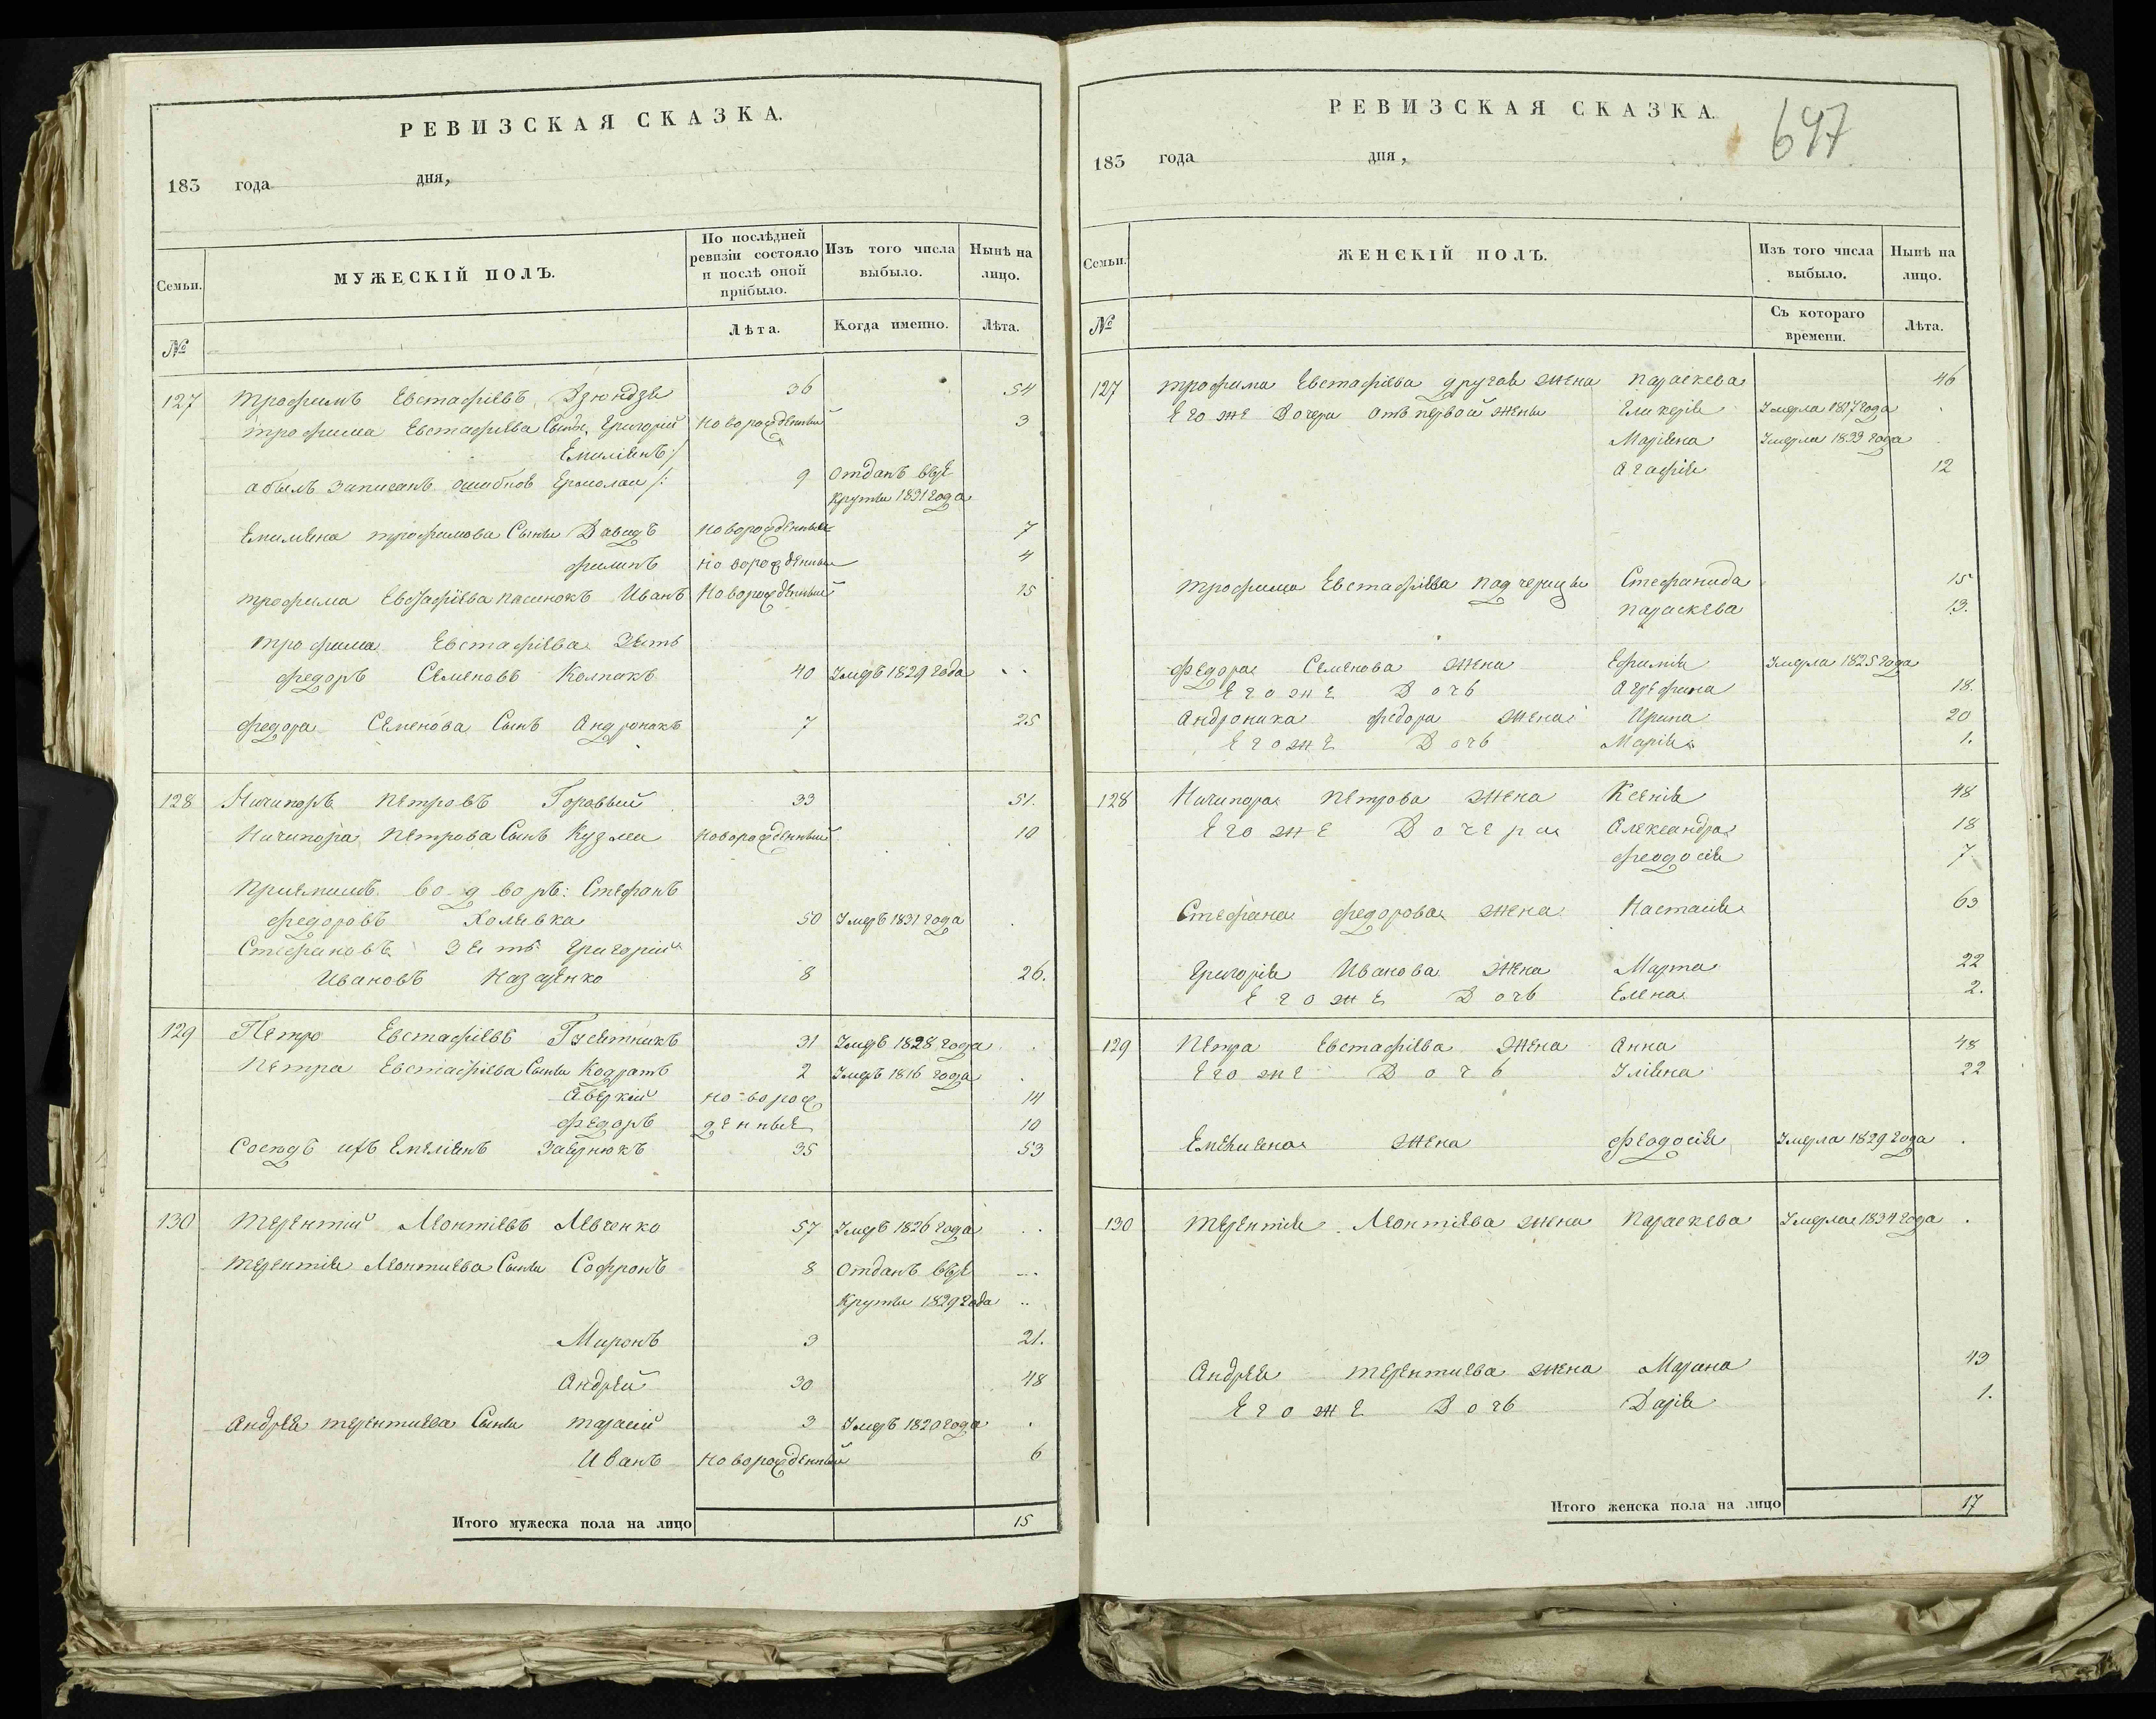 РЕВИЗСКАЯ СКАЗКА.
183 года дня,
Семьи.
МУЖЕСКІЙ ПОЛЪ.
По послѣдней ревизіи состояло и послѣ оной прибыло.
Изъ того числа выбыло.
Нынѣ на лицо.
№
Лѣта.
Когда именно.
Лѣта.
127 Трофимъ Евстафіевъ Дзюндзя 36 54
Трофима Евстафіева Сынъ Григорій новорожденный 3
Емиліянъ /
а былъ записанъ ошибкою Ермолаи /: 9 отданъ въ ре
круты 1831 года
Емиляна трофимова Сыны Давидъ новорожденные 7
филипъ новорожденный 4
трофима Евстафіева пасинокъ Иванъ Новорожденный 15
трофима Евстафіева Зять
федоръ Семеновъ Колпакъ 40 Умеръ 1829 года
федора Семенова Сынъ Андронакъ 7 25
128 Ничипоръ петровъ Горовый 33 51.
Ничипора петрова Сынъ Кузма новорожденный 10
Приемышъ во дворъ: Стефанъ
федоровъ Холявка 50 Умеръ 1831 года
Стефановъ Зять Григорій
Ивановъ Назаренко 8 26.
129 Петро Евстафіевъ 31 Умеръ 1828 года
петра Евстафіева Сыны Кодратъ 2 Умеръ 1816 года
Аверкій новорож 14
федоръ денные 10
Соседъ ихъ Емеліянъ Завернюкъ 35 53
130 терентій Леонтіевъ Левченко 57 Умеръ 1826 года
терентія Леонтиева Сыны Софронъ 8 отданъ въ ре
круты 1829 года
Миронъ 3 21.
Андрей 30 48
Андрея терентиева Сыны тарасій 3 Умеръ 1820 года
Иванъ новорожденный 6
Итого мужеска пола на лицо 15
РЕВИЗСКАЯ СКАЗКА.
647
183 года дня,
Семьи.
ЖЕНСКІЙ ПОЛЪ.
Изъ того числа выбыло.
Нынѣ на лицо.
№
Съ котораго времени.
Лѣта.
127 трофима Евстафіева другая жена параскева 46
Его же Дочери отъ первой жены Гликерія Умерла 1817 года
Маріяна Умерла 1833 года
Агафія 12
трофима Евстафіева падчерицы Стефанида 15
параскева 13.
федора Семенова жена Ефимія Умерла 1825 года
Его же Дочь Агрефина 18.
Андроника федора жена Ирина 20
Его же Дочь Марія 1.
128 Ничипора петрова жена Ксенія 48
Его же Дочера Александра 18
феодосія 7
Стефана федорова жена Настасія 63
Григорія Иванова жена Марта 22
Его же Дочь Елена 2.
129 петра Евстафіева жена Анна 48
Его же Дочь Уліяна 22
Емельяна жена феодосія Умерла 1829 года
130 терентія Леонтіева жена параскева Умерла 1834 года
Андрея терентиева жена Марина 43
Его же Дочь Дарія 1.
Итого женска пола на лицо 17